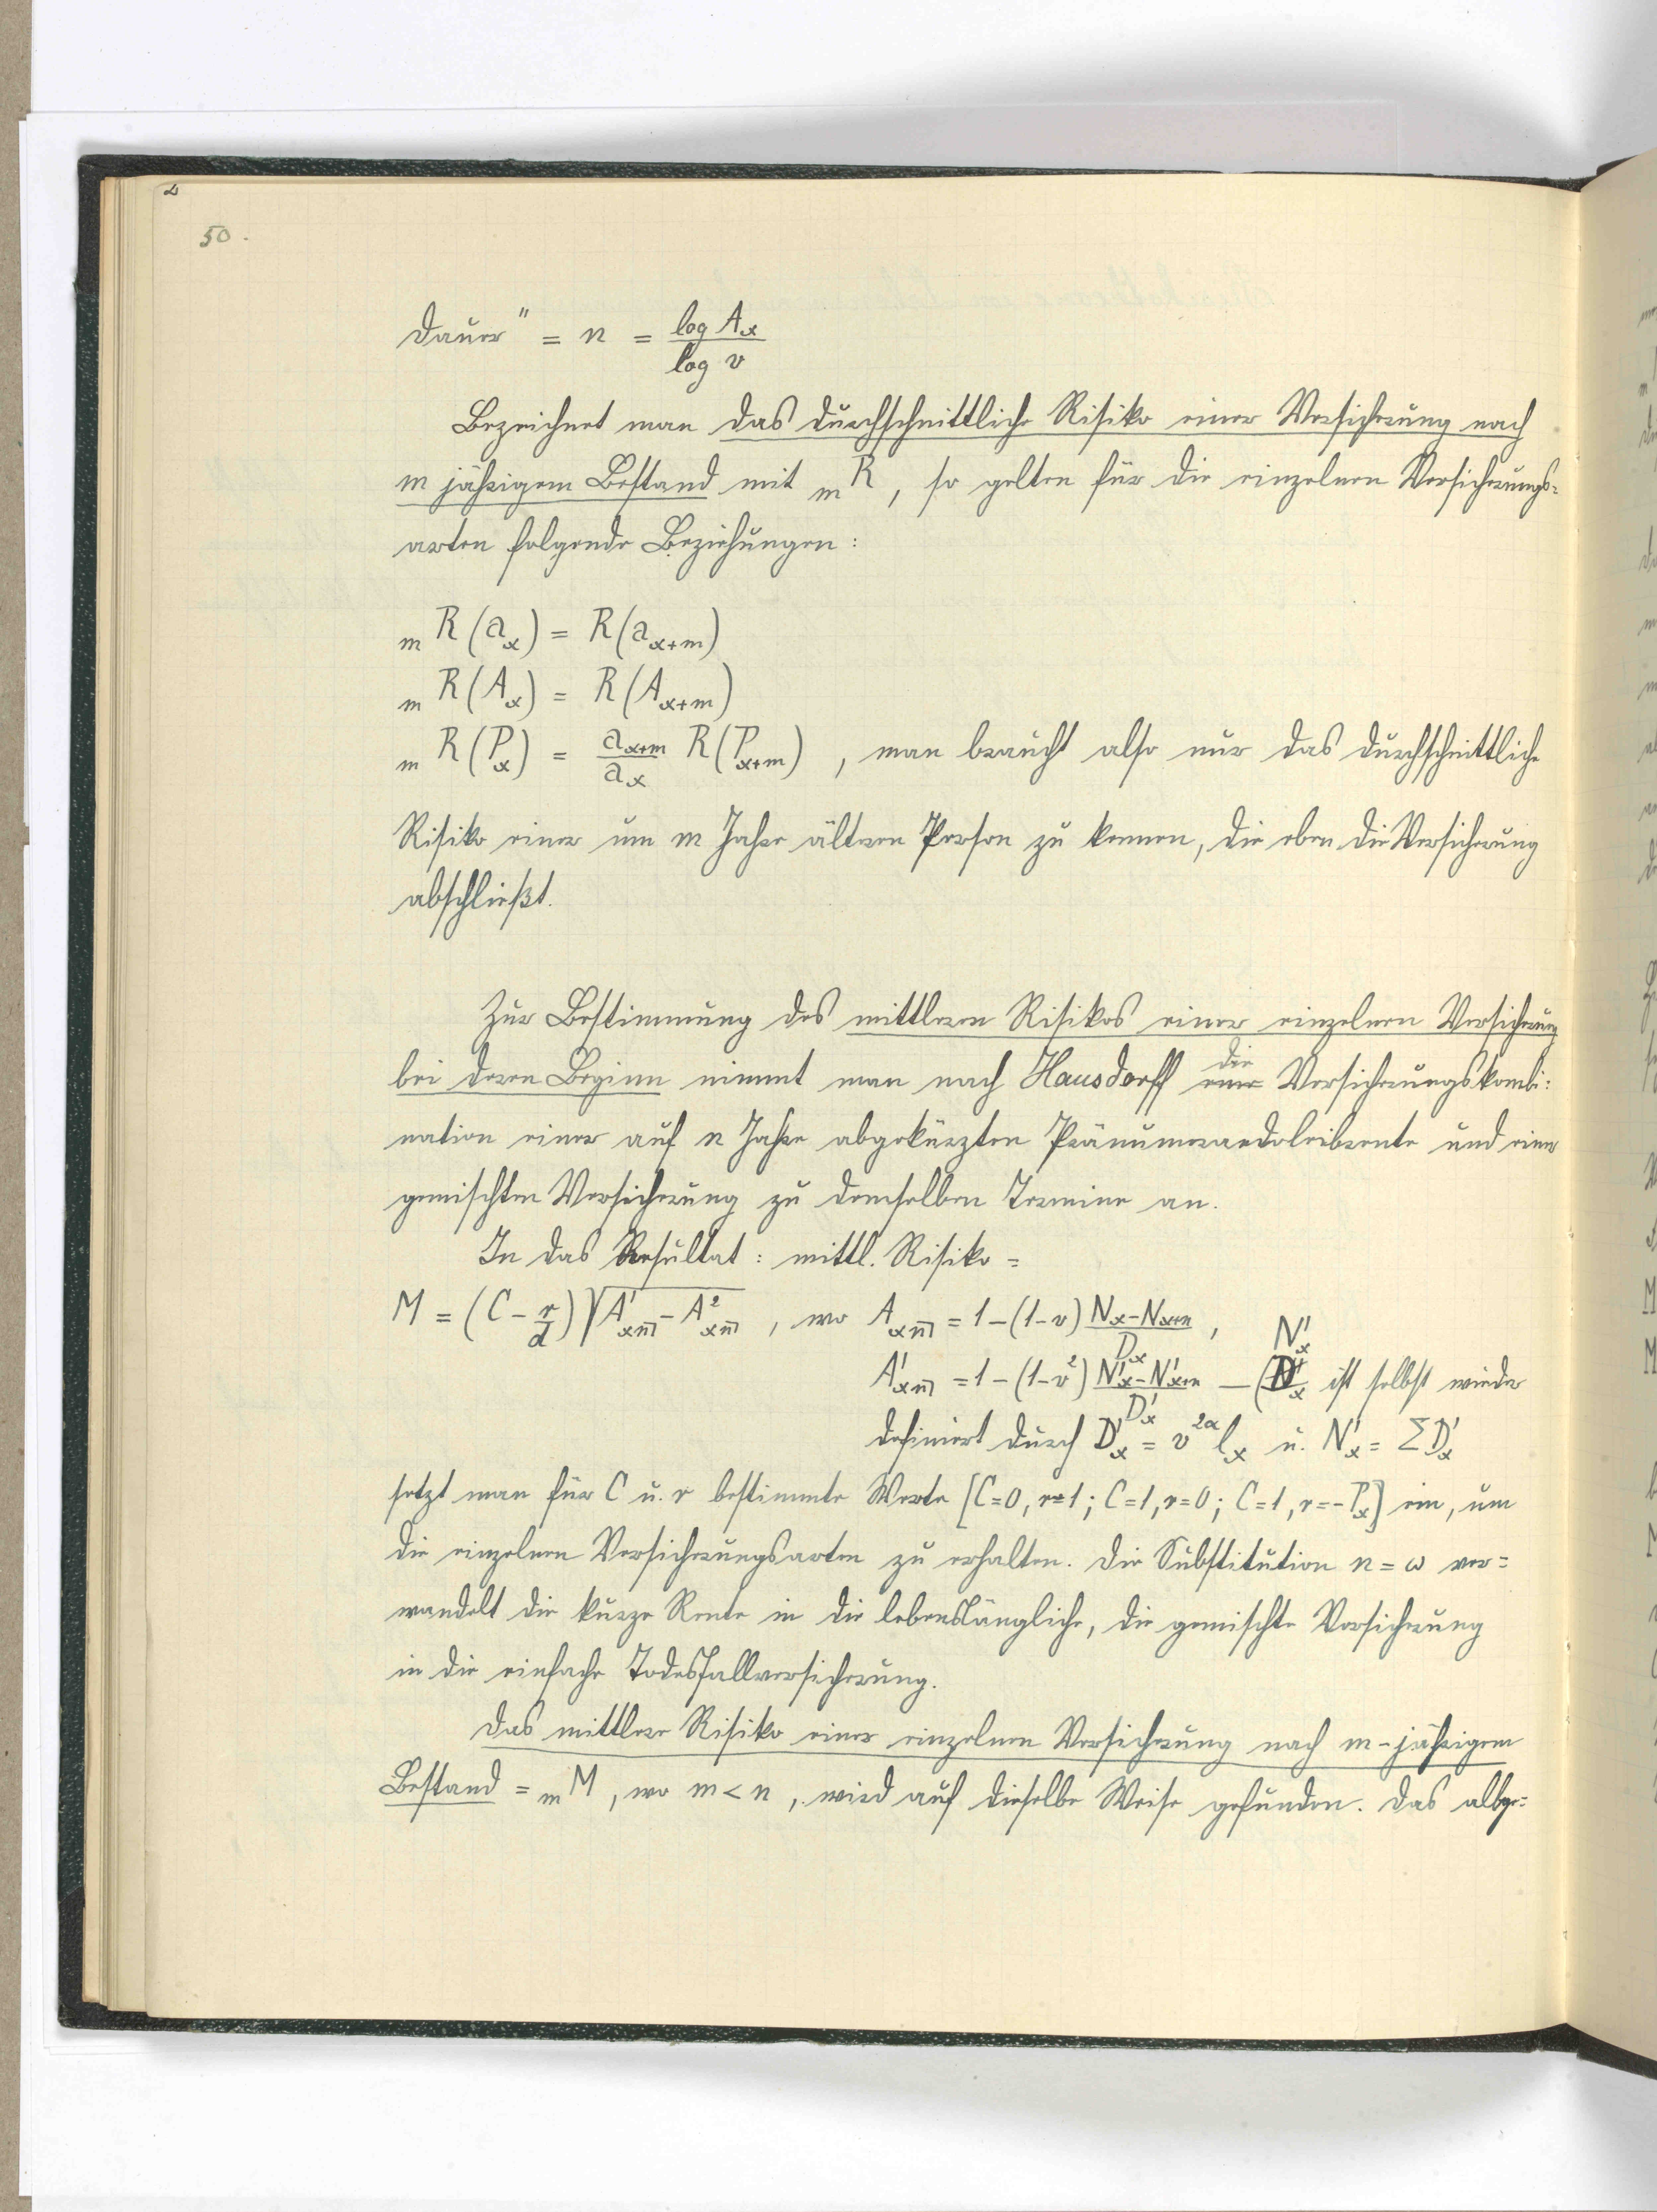 50.
Dauer" = n = log A_x / log v
Bezeichnet man das durchschnittliche Risiko einer Versicherung nach
m jährigem Bestand mit _mR, so gelten für die einzelnen Versicherungs=
arten folgende Beziehungen:
_mR(a_x) = R(a_{x+m})
_mR(A_x) = R(A_{x+m})
_mR(P_x) = a_{x+m}/a_x R(P_{x+m}), man braucht also nur das durchschnittliche
Risiko einer um m Jahre älteren Person zu kennen, die eben die Versicherung
abschließt.
Zur Bestimmung des mittleren Risikos einer einzelnen Versicherung
bei deren Beginn nimmt man nach Hausdorff die Versicherungskombi=
nation einer auf n Jahre abgekürzten Pränumerandoleibrente und einer
gemischten Versicherung zu demselben Termine an.
In das Resultat: mittl. Risiko =
M = (C - r/d) √(A'_{xn̅|} - A²_{xn̅|}), wo A_{xn̅|} = 1-(1-v) (N_x-N_{x+n})/D_x,
A'_{xn̅|} = 1-(1-v²) (N'_x-N'_{x+n})/D'_x — (N'_x/D'_x ist selbst wieder
definiert durch D'_x = v^{2x} l_x u. N'_x = ΣD'_x
setzt man für C u. r bestimmte Werte [C=0, r=1; C=1, r=0; C=1, r=-P_x] ein, um
die einzelnen Versicherungsarten zu erhalten. Die Substitution n = ω ver=
wandelt die kurze Rente in die lebenslängliche, die gemischte Versicherung
in die einfache Todesfallversicherung.
Das mittlere Risiko einer einzelnen Versicherung nach m-jährigem
Bestand = _mM, wo m < n, wird auf dieselbe Weise gefunden. Das abge=